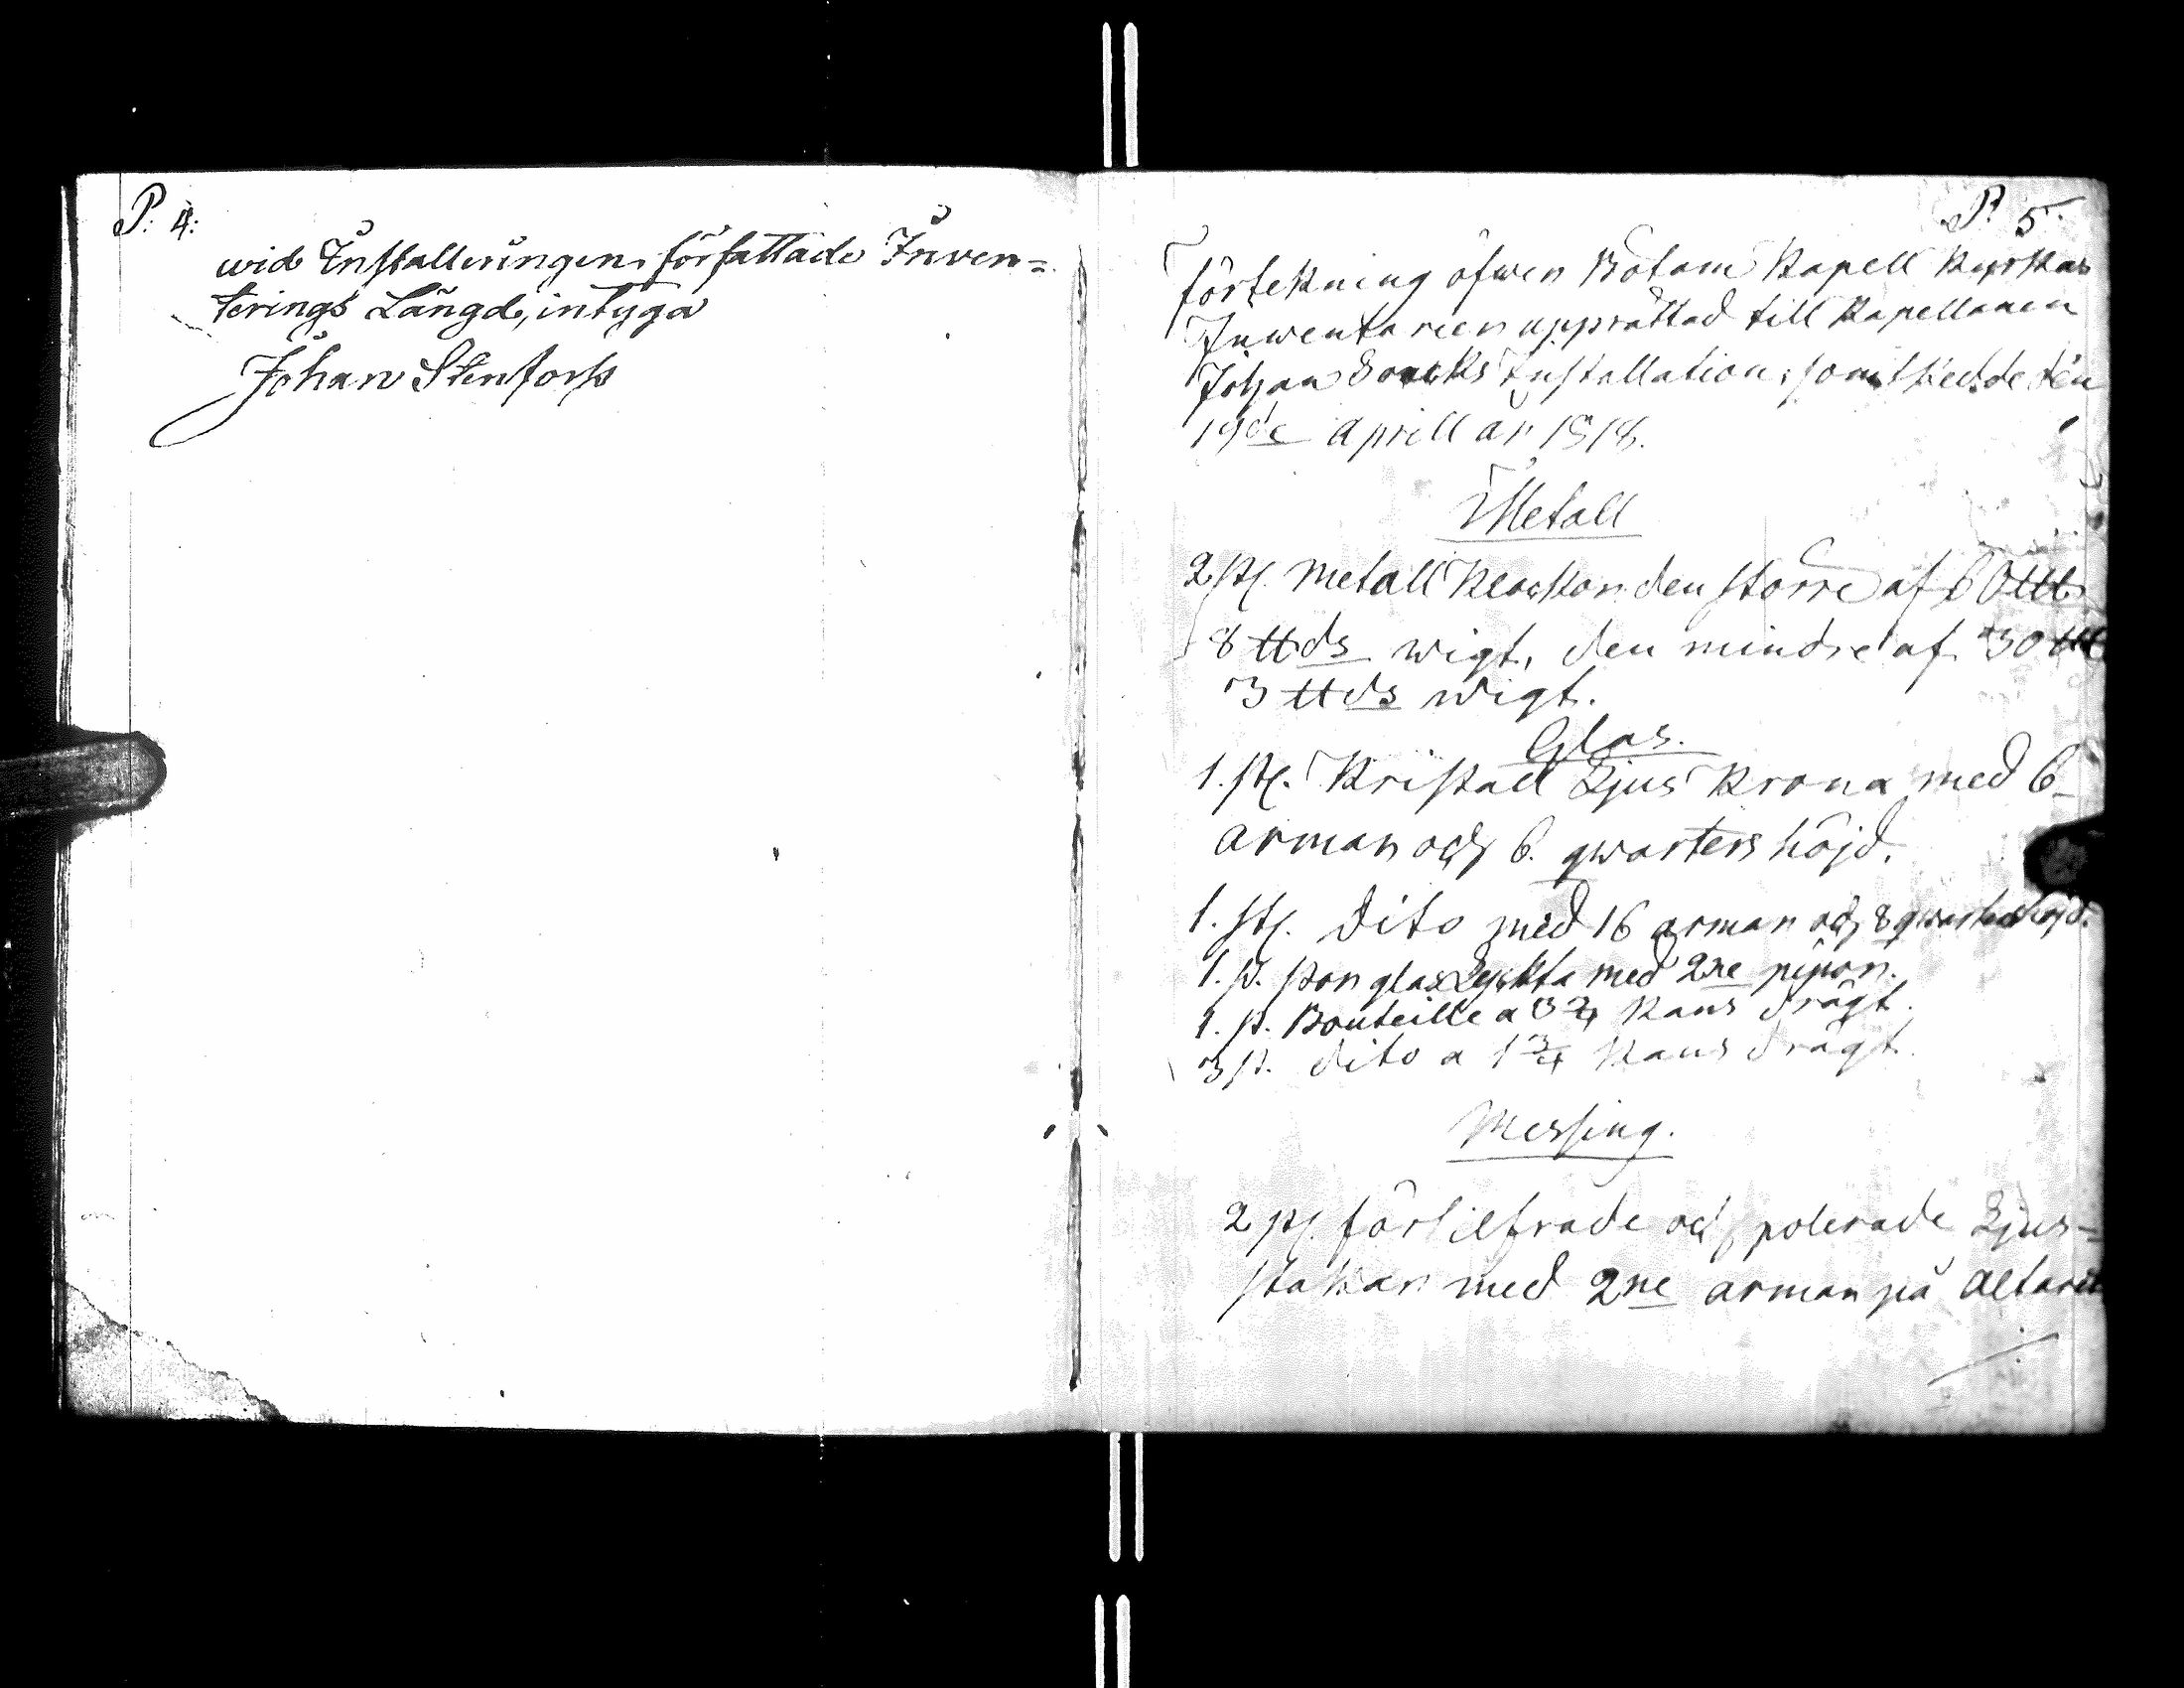 P. 4:
wid Installeringen författade Inven=
terings Längd, intyga
Johan Stenforss
P. 5.
förtekning öfwer Bötom Kapell Kyrkas
Inwentarier upprättad till Kapellanen
Johan Installation, som skedde den
19de Aprill år 1818.
Metall
2 st. Metall Klockor den större af 6
8 ttds wigt, den mindre af 30
3 ttds wigt.
Glas.
1. st. Kristall Ljus Krona med 6
armar och 6. qwarters höjd.
1. st. dito med 16 armar och 8 qwarters höjd.
1. st. stor glas Lyckta med 2ne pipor.
1. st. Bouteille a Kans drägt.
3 st. dito a 1 3/4 Kans drägt.
Messing.
2 st. försilfrade och polerade Ljus=
stakar med 2ne armar på Altaret